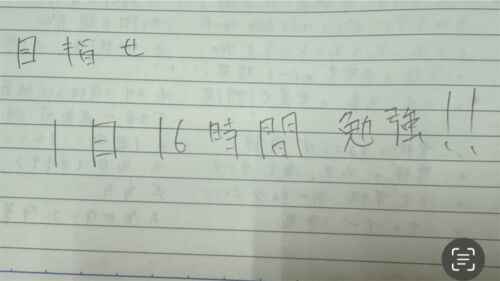 目指せ
1目16時間 勉強!!